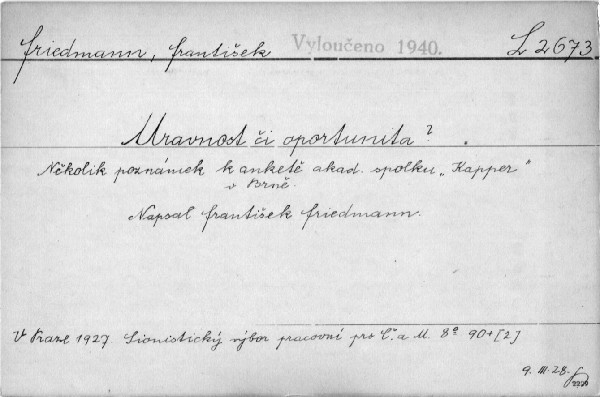 Friedmann, František Vyloučeno 1940. L 2673
Mravnost či oportunita?
Několik poznámek k anketě akad. spolku „Kapper“
v Brně.
Napsal František Friedmann.
V Praze 1927 Sionistický výbor pracovní pro Č. a M. 8° 90+[2]
9. III. 28.